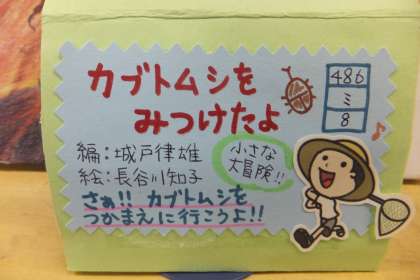 カブトムシを
みつけたよ
486
ミ
8
編:城戸律雄
絵:長谷川知子
小さな
大冒険!!
さぁ!! カブトムシを
つかまえに行こうよ!!